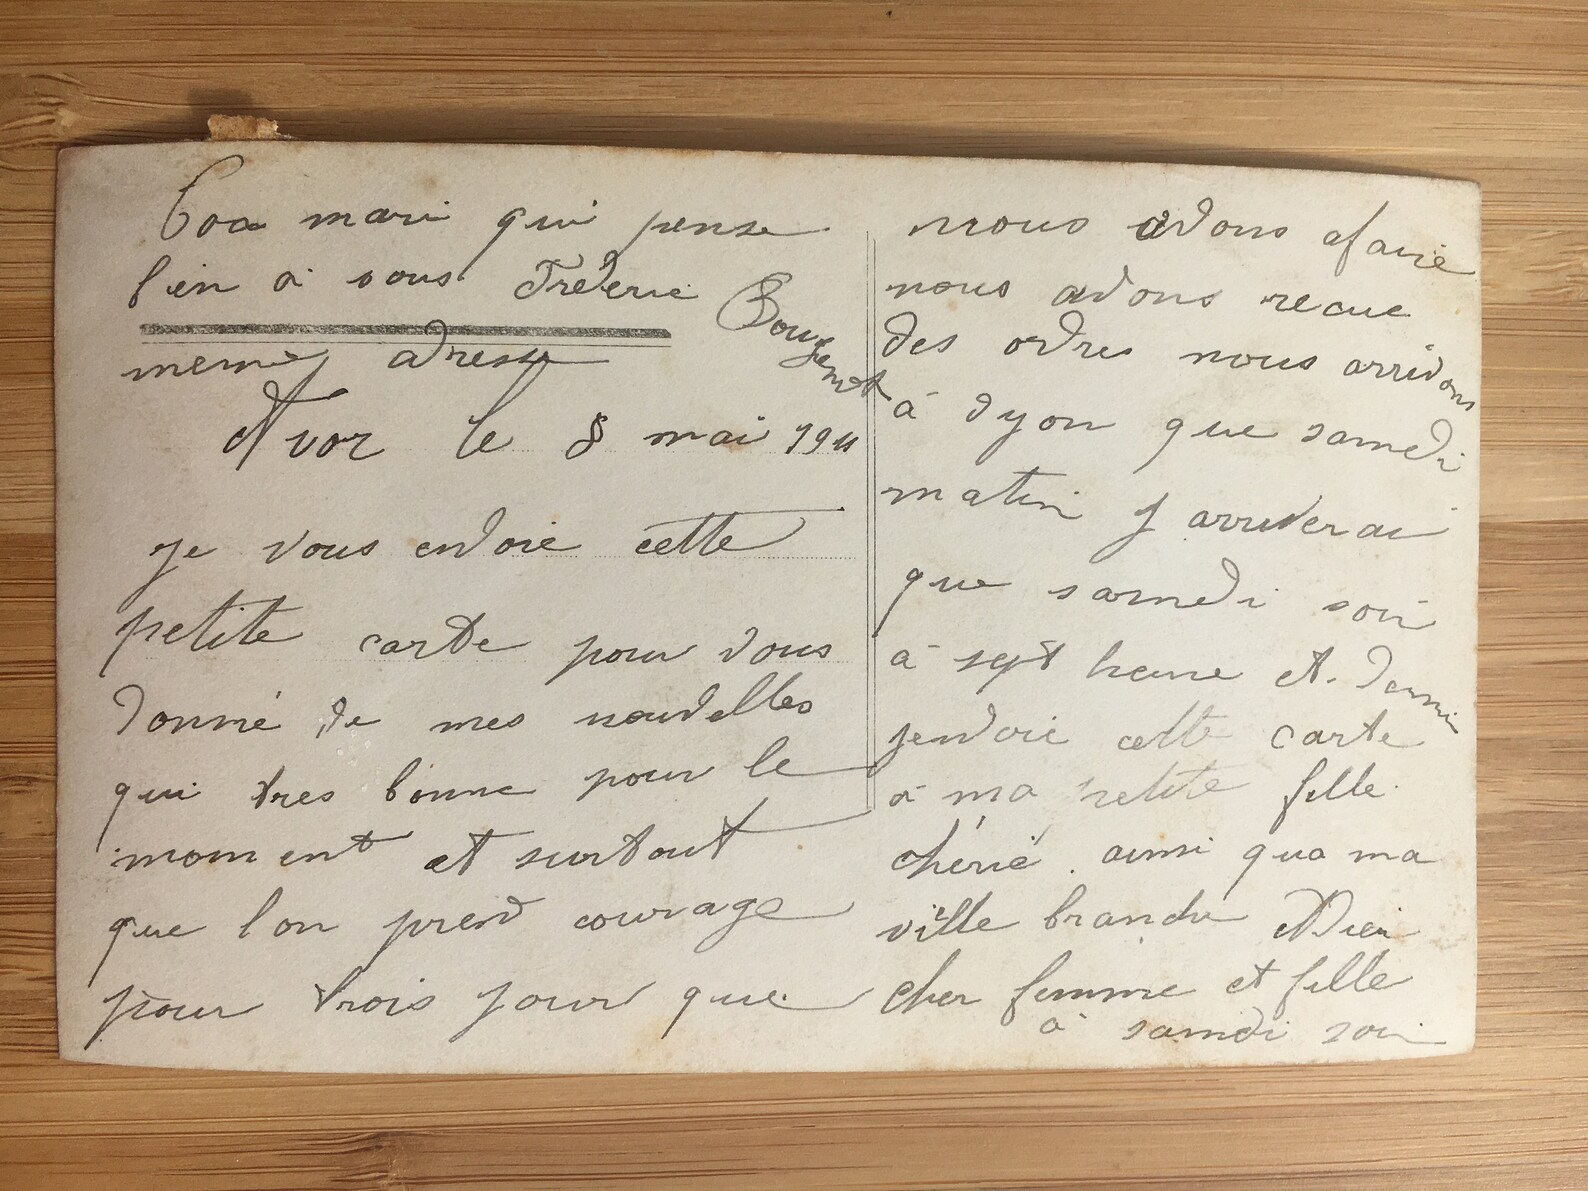 mari qui pense
bien à vous Frederic
meme adresse
Avor le 8 mai 1911
je vous envoie cette
petite carte pour vous
donné de mes nouvelles
qui tres bonne pour le
moment et surtout
que lon prend courage
pour trois jour que
nous avons afaire
nous avons recue
des ordres nous arrivons
à dyon que samedi
matin j arriverai
que samedi soir
à sept heure et demi
jenvoie cette carte
à ma petite fille
chérié ainsi qua ma
ville
cher femme et fille
à samdi soir